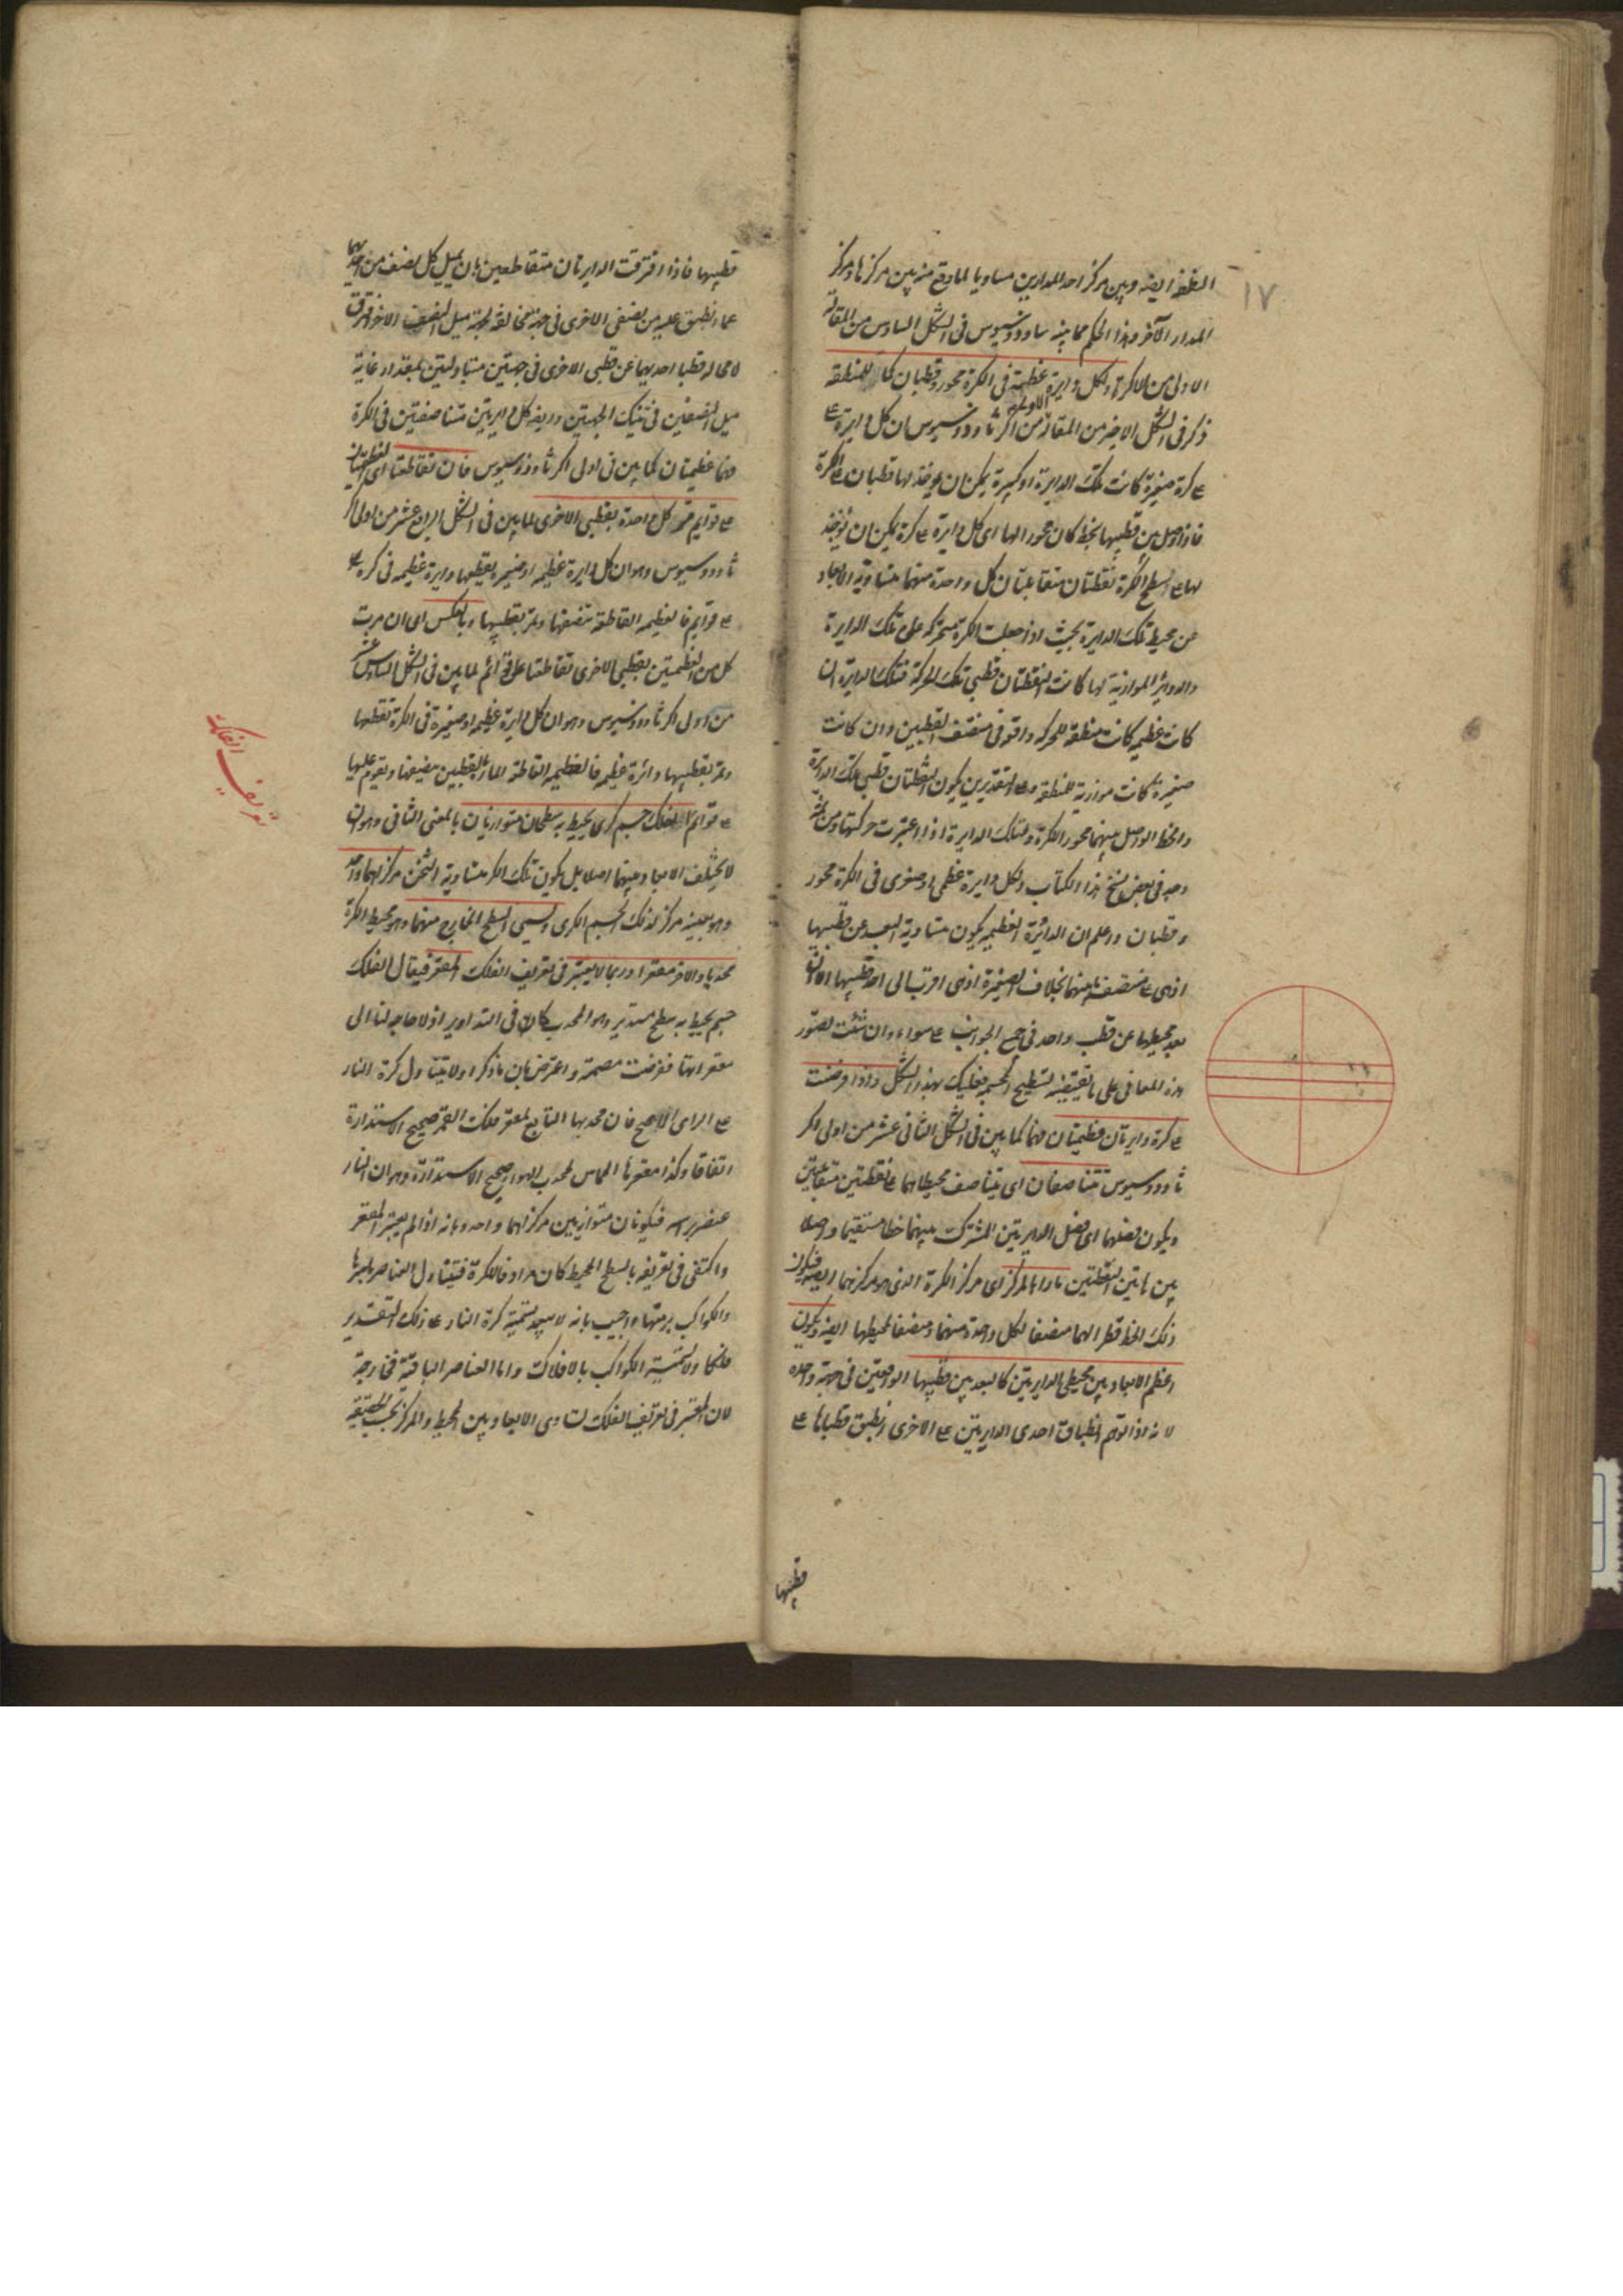 ١٧
العظمة ايضه وبين مركز احد المدارين مساويا لما وقع منه بين مركزها ومركز
المدار الآخر وهذا الحكم مما بينه ثاودوسيوس فى الشكل السادس من المقالة
الاولى من الاكر ولكل دايرة عظيمة فى الكرة محور وقطبان كما للمنطقة
ذكر فى الشكل الاخير من المقالة الاولى من اكر ثاودوسيوس ان كل دايرة
على كرة صغيرة كانت تلك الدايرة او كبيرة يمكن ان يوجد لها قطبان على الكرة
فاذا وصل بين قطبيها بخط كان محورا لها اى كل دايرة على كرة يمكن ان يوجد
لها على سطح الكرة نقطتان متقابلتان كل واحدة منهما متساوية الابعاد
عن محيط تلك الدايرة بحيث اذا جعلت الكرة متحركة على تلك الدايرة
والدواير الموازية لها كانت النقطتان قطبى تلك الحركة فتلك الدايرة ان
كانت عظيمة كانت منطقة للحركة واقعة فى منتصف القطبين وان كانت
صغيرة كانت موازية للمنطقة وعلى التقديرين يكون النقطتان قطبى تلك الدايرة
والخط الواصل بينهما محور الكرة ولتلك الدايرة اذا اعتبرت حركتها ومن ثم
وجد فى بعض نسخ هذا الكتاب ولكل دايرة عظمى او صغرى فى الكرة محور
وقطبان واعلم ان الدائرة العظيمة يكون متساوية البعد عن قطبيها
اذ هى على منتصف ما بينهما بخلاف الصغيرة اذ هى اقرب الى احد قطبيها الا ان
بعد محيطها عن قطب واحد فى جميع الجوانب على سواء وان شئت تصور
هذه المعانى على ما يقتضيه تسطيح المجسم فعليك بهذا الشكل واذا فرضت
على كرة دايرتان عظيمتان فهما كما بين فى الشكل الثانى عشر من اولى اكر
ثاودوسيوس تتناصفان اى يتناصف محيطاهما على نقطتين متقابلتين
ويكون فصلهما اى فصل الدايرتين المشترك بينهما خطا مستقيما واصلا
بين هاتين النقطتين مارا بالمركز اى مركز الكرة الذى هو مركزهما ايضه فيكون
ذلك الخط قطرا لهما منصفا لكل واحدة منهما ومنصفا لمحيطها ايضه ويكون
اعظم الابعاد بين محيطى الدايرتين كالبعد بين قطبيهما الواقعين فى جهة واحدة
لانه اذا توهم انطباق احدى الدايرتين على الاخرى انطبق قطباها على
قطبيها
قطبيها فاذا افترقت الدايرتان متقاطعين بان يميل كل نصف من احديهما
عما انطبق عليه من نصفى الاخرى فى جهة مخالفة لجهة ميل النصف الاخر افترق
لا محاله قطبا احديهما عن قطبى الاخرى فى جهتين متبادلتين بمقدار غاية
ميل النصفين فى تينك الجهتين وايضه كل دايرتين متناصفتين فى الكرة
فهما عظيمتان كما بين فى اولى اكر ثاودوسيوس فان تقاطعتا اى العظيمتان
على قوايم فمر كل واحدة بقطبى الاخرى لما بين فى الشكل الرابع عشر من اولى اكر
ثاودوسيوس وهو ان كل دايرة عظيمه او صغيره يقطعها دايرة عظيمه فى كره
على قوايم فالعظيمه القاطعة تنصفها وتمر بقطبيها وبالعكس اى ان مرت
كل من العظيمتين بقطبى الاخرى تقاطعتا على قوائم لما بين فى الشكل السادس عشر
من اولى اكر ثاودوسيوس وهو ان كل دايرة عظيمه او صغيرة فى الكرة تقطعها
وتمر بقطبيها دائرة عظيمه فالعظيمه القاطعة المارة بالقطبين تنصفها وتقوم عليها
على قوائم الفلك جسم كرى يحيط به سطحان متوازيان بالمعنى الثانى وهو ان
لا يختلف الابعاد بينهما اصلا بل يكون تلك الكرة متساوية الثخن مركزهما واحد
وهو بعينه مركز لذلك الجسم الكرى ويسمى السطح الخارج منهما وهو محيط الكرة
محدبا والآخر مقعرا وربما لا يعتبر فى تعريف الفلك المقعر فيقال الفلك
جسم يحيط به سطح مستدير وهو المحدب كالا فى التداوير اذ لا حاجه لنا الى
مقعراتها ففرضت مصمتة واعترض بان ما ذكر اولا يتناول كرة النار
على الراى الاصح فان محدبها التابع لمقعر فلك القمر صحيح الاستدارة
اتفاقا وكذا مقعرها المماس لمحدب الهواء صحيح الاستدارة وهو ان النار
عنصر براسه فيكونان متوازيين مركزاهما واحد وبانه اذا لم يعتبر المقعر
واكتفى فى تعريفه بالسطح المحيط كان مرادفا للكرة فيتناول العناصر باسرها
والكواكب برمتها واجيب بانه لا يبعد تسمية كرة النار على ذلك التقدير
فلكا ولا تسمية الكواكب بالافلاك واما العناصر الباقية فخارجة
لان المعتبر فى تعريف الفلك تساوى الابعاد بين المحيط والمركز بحسب الحقيقة
تعريف الفلك